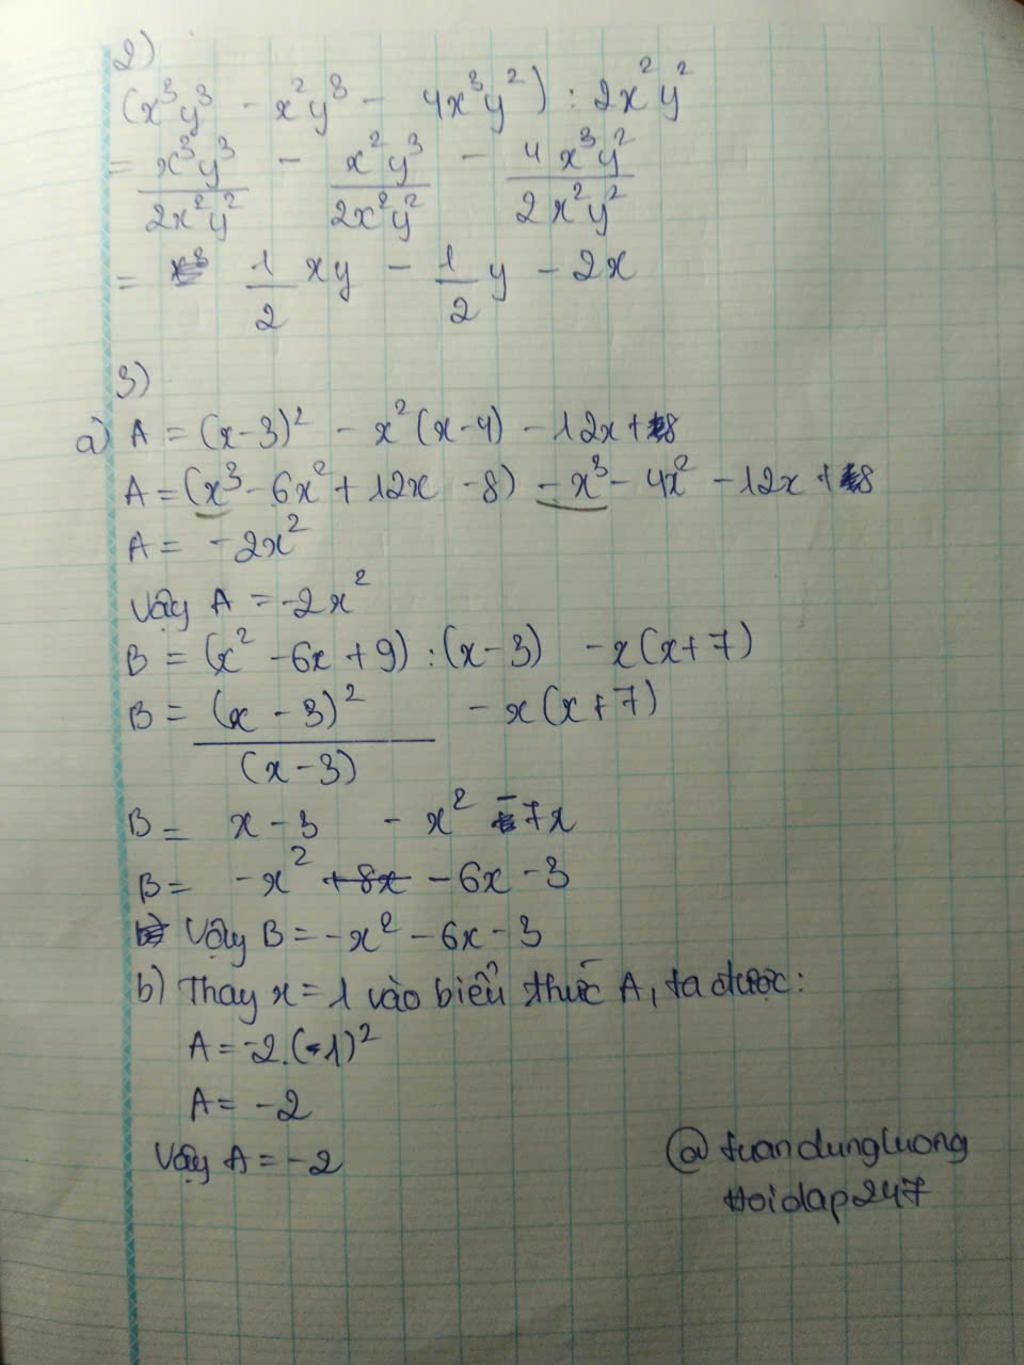 2)
(x³y³ - x²y³ - 4x³y²) : 2x²y²
= x³y³/2x²y² - x²y³/2x²y² - 4x³y²/2x²y²
= 1/2 xy - 1/2 y - 2x
3)
a) A = (x-3)² - x²(x-4) - 12x + 8
A = (x³ - 6x² + 12x - 8) - x³ - 4x² - 12x + 8
A = -2x²
Vậy A = -2x²
B = (x² - 6x + 9) : (x - 3) - x(x + 7)
B = (x - 3)²/(x - 3) - x(x + 7)
B = x - 3 - x² - 7x
B = -x² +8x - 6x - 3
Vậy B = -x² - 6x - 3
b) Thay x = 1 vào biểu thức A, ta được:
A = -2.(-1)²
A = -2
Vậy A = -2
@tuandungluong
hoidap247